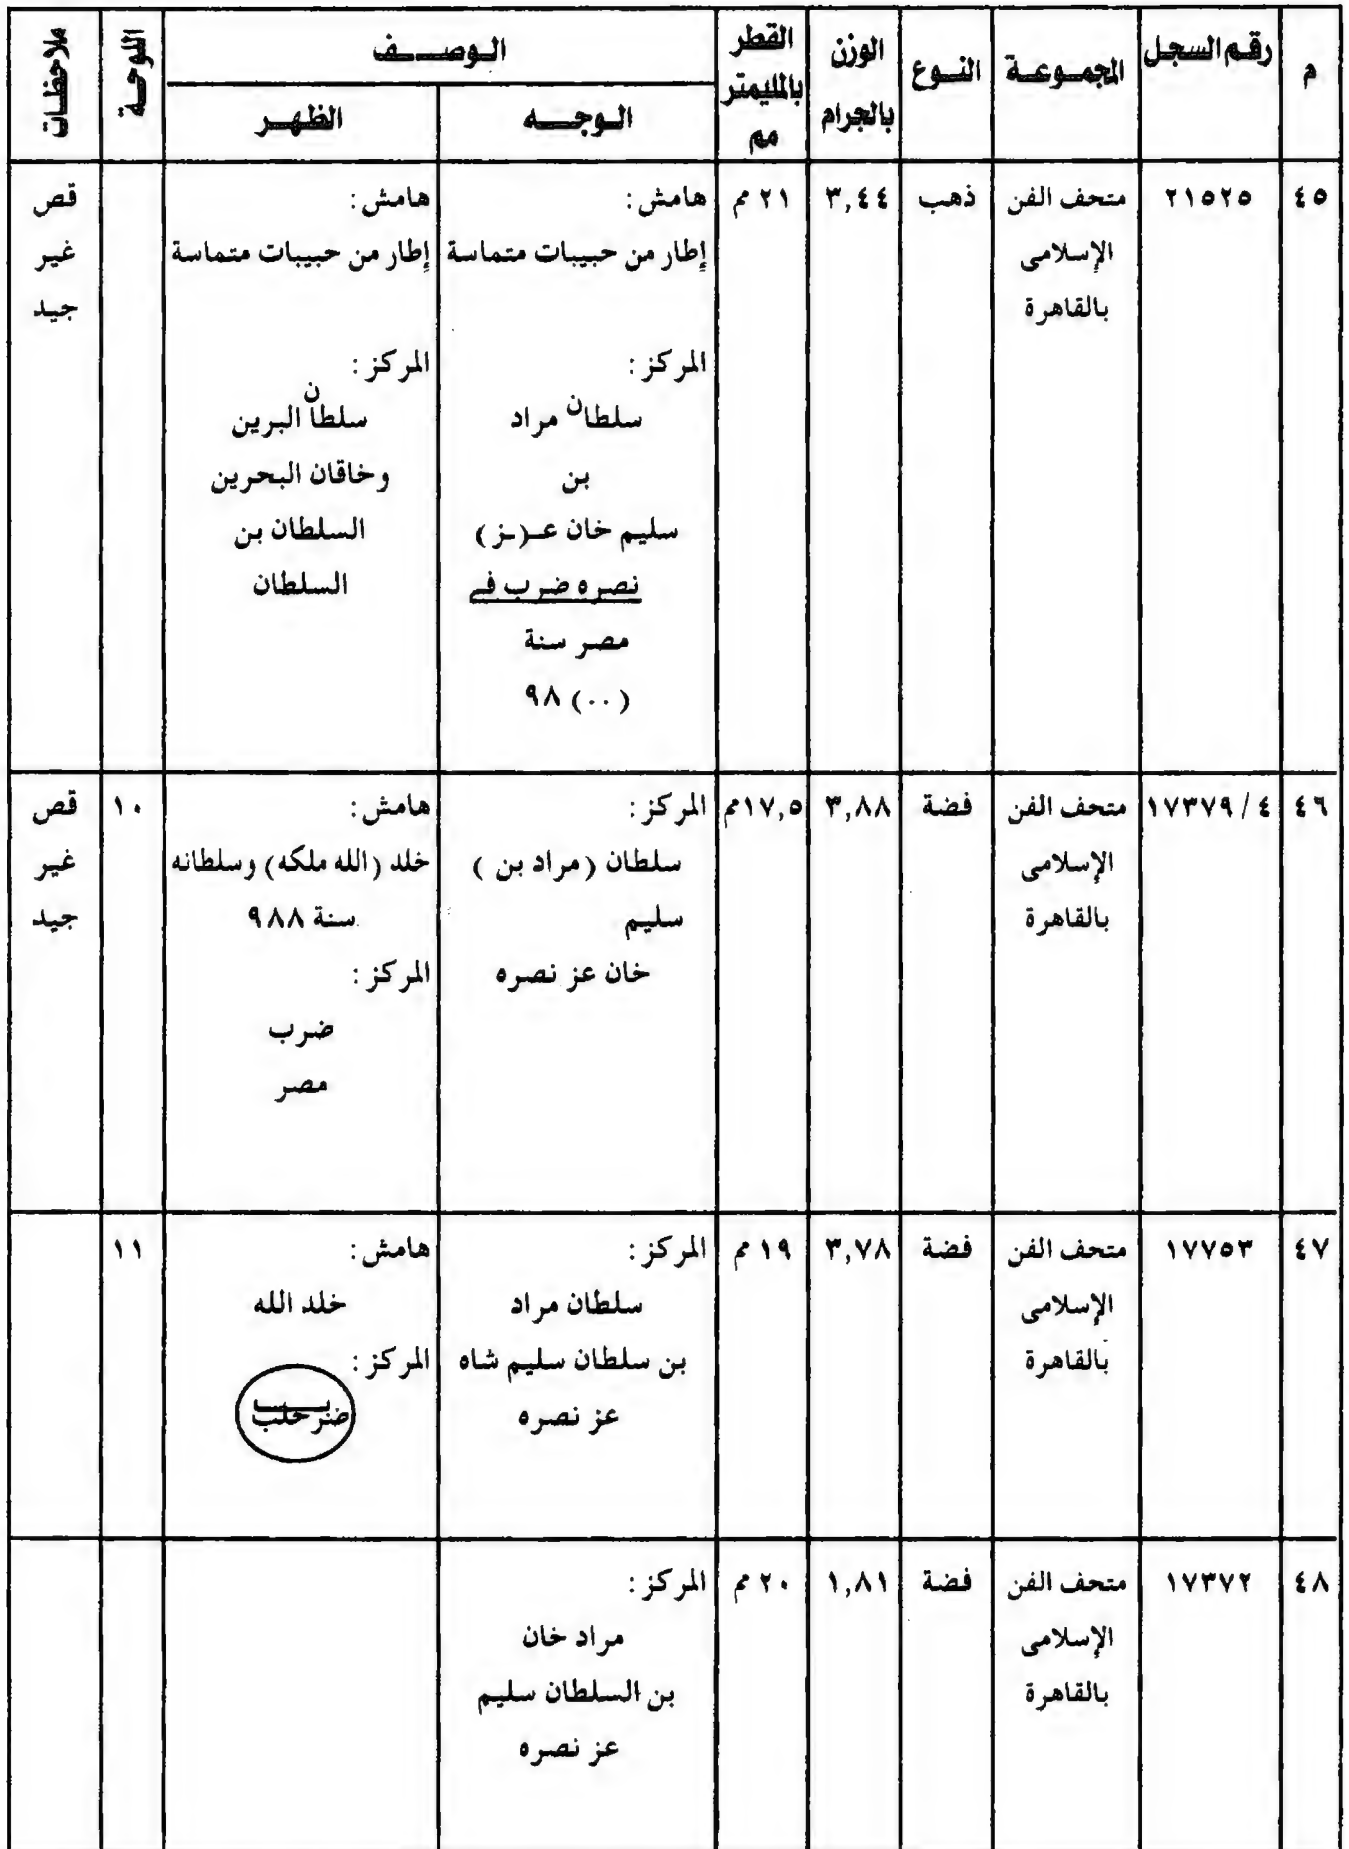 م
رقم السجل
المجموعة
النوع
الوزن
بالجرام
القطر
بالمليمتر
مم
الوصف
الوجه
الظهر
اللوحة
ملاحظات
٤٥
٢١٥٢٥
متحف الفن
الإسلامى
بالقاهرة
ذهب
٣,٤٤
٢١ مم
هامش :
إطار من حبيبات متماسة
المركز :
سلطان مراد
بن
سليم خان عـ(ـز)
نصره ضرب في
مصر سنة
٩٨ (٠٠)
هامش :
إطار من حبيبات متماسة
المركز :
سلطان البرين
وخاقان البحرين
السلطان بن
السلطان
قص
غير
جيد
٤٦
١٧٣٧٩/٤
متحف الفن
الإسلامى
بالقاهرة
فضة
٣,٨٨
١٧,٥مم
المركز :
سلطان (مراد بن )
سليم
خان عز نصره
هامش :
خلد (الله ملكه) وسلطانه
سنة ٩٨٨
المركز :
ضرب
مصر
١٠
قص
غير
جيد
٤٧
١٧٧٥٣
متحف الفن
الإسلامى
بالقاهرة
فضة
٣,٧٨
١٩ مم
المركز :
سلطان مراد
بن سلطان سليم شاه
عز نصره
هامش :
خلد الله
المركز :
ضرب حلب
١١
٤٨
١٧٣٧٢
متحف الفن
الإسلامى
بالقاهرة
فضة
١,٨١
٢٠ مم
المركز :
مراد خان
بن السلطان سليم
عز نصره